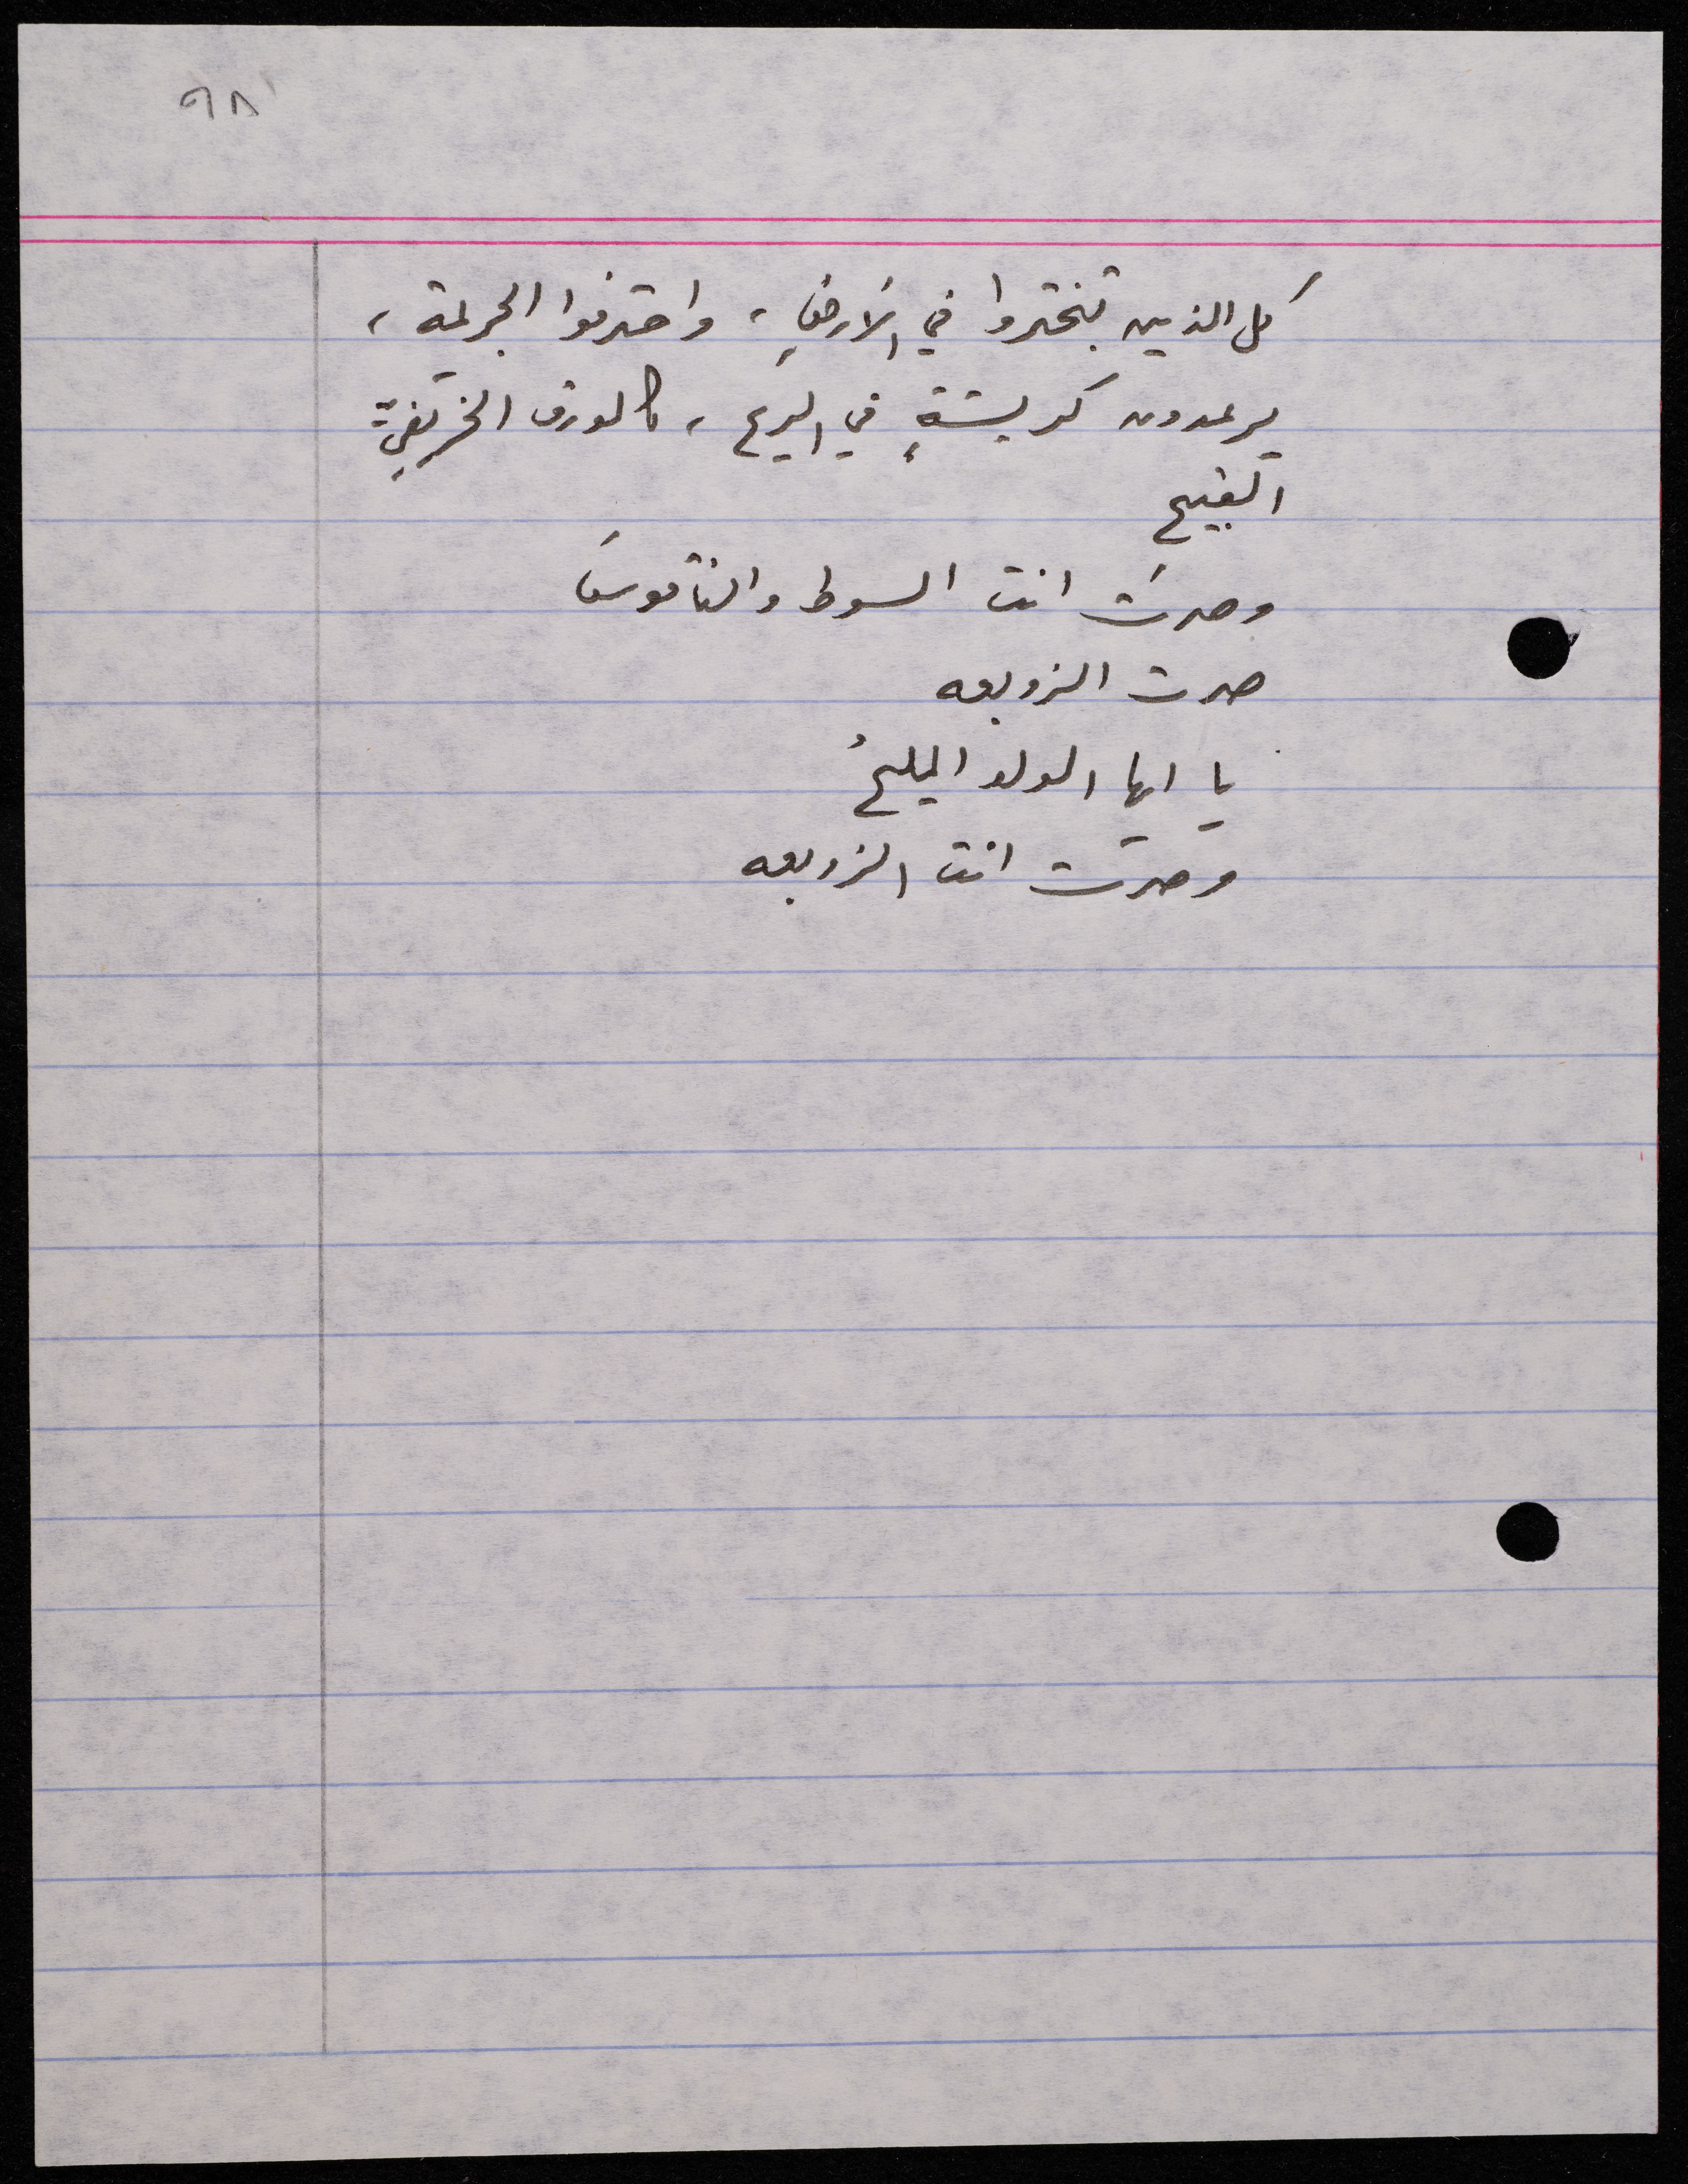 ٩٨
كل الذين تبختروا في الأرضِ، واحترفوا الجريمة،
يرعدون كريشةٍ في الريح، كالورق الخريفيِّ
القبيح
وصرتَ انت السوط والناقوسَ
صرت الزوبعه
يا ايها الولد المليحُ
وصرت انت الزوبعه